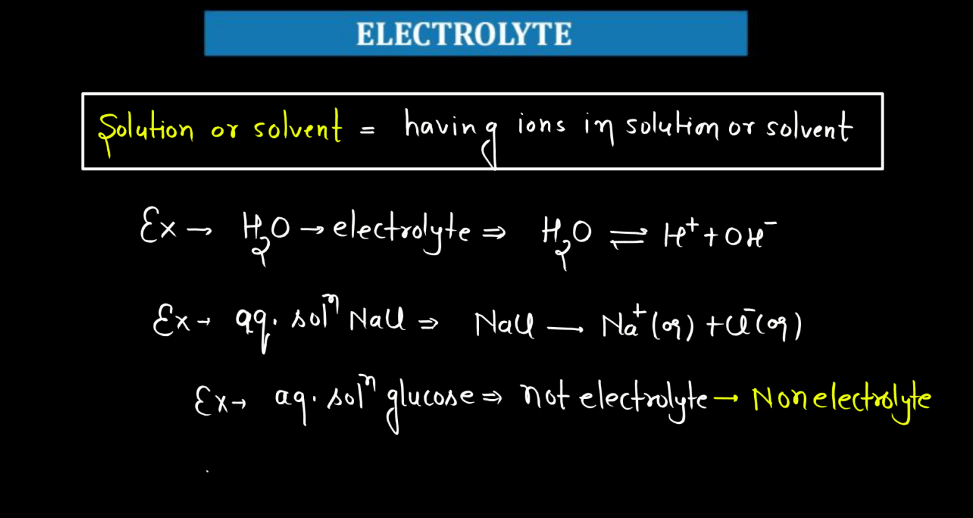 ELECTROLYTE
Solution or solvent = having ions in solution or solvent
Ex → H₂O → electrolyte ⇒ H₂O ⇌ H⁺ + OH⁻
Ex → aq. solⁿ NaCl ⇒ NaCl → Na⁺(aq) + Cl⁻(aq)
Ex → aq. solⁿ glucose ⇒ not electrolyte → Nonelectrolyte